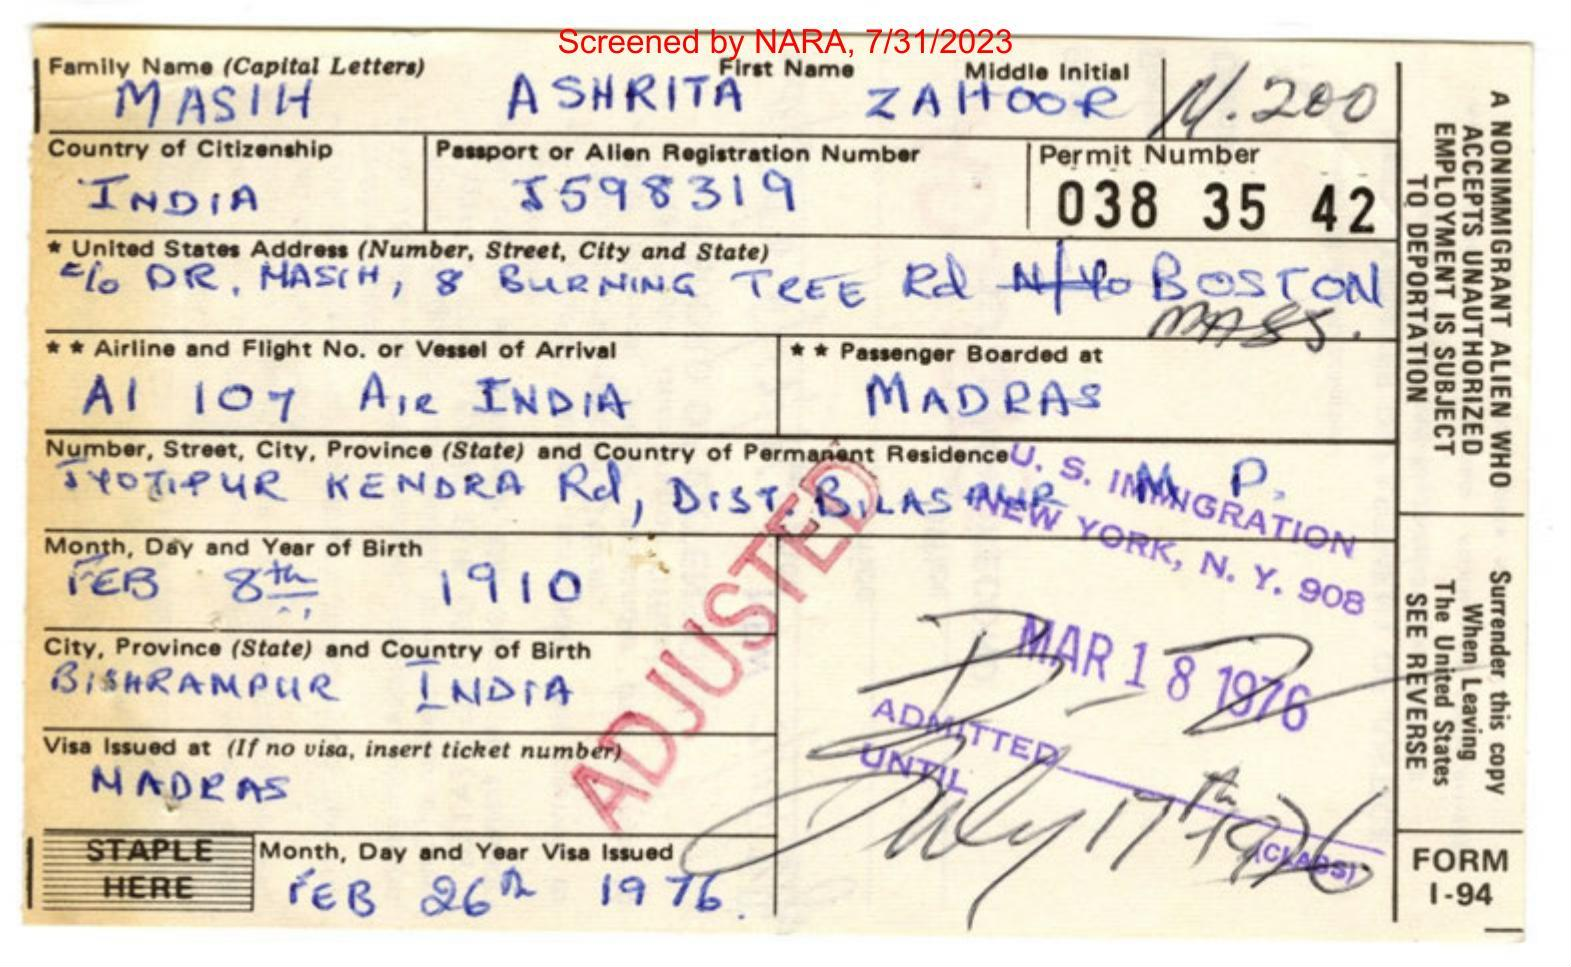 Screened by NARA, 7/31/2023
Family Name (Capital Letters) First Name Middle Initial
MASIH ASHRITA ZAHOOR M.200
Country of Citizenship Passport or Alien Registration Number Permit Number
INDIA J598319 038 35 42
* United States Address (Number, Street, City and State)
c/o DR. MASIH, 8 BURNING TREE Rd BOSTON
MASS.
* * Airline and Flight No. or Vessel of Arrival * * Passenger Boarded at
AI 107 AIR INDIA MADRAS
Number, Street, City, Province (State) and Country of Permanent Residence
JYOTIPUR KENDRA Rd, DIST. BILASPUR M P.
U. S. IMMIGRATION
NEW YORK, N. Y. 908
Month, Day and Year of Birth
FEB 8th 1910
MAR 18 1976
City, Province (State) and Country of Birth
BISHRAMPUR INDIA
ADMITTED
UNTIL
July 17th 1976
(CLASS)
ADJUSTED
Visa Issued at (If no visa, insert ticket number)
MADRAS
STAPLE
HERE
Month, Day and Year Visa Issued
FEB 26th 1976.
A NONIMMIGRANT ALIEN WHO
ACCEPTS UNAUTHORIZED
EMPLOYMENT IS SUBJECT
TO DEPORTATION
Surrender this copy
When Leaving
The United States
SEE REVERSE
FORM
I-94